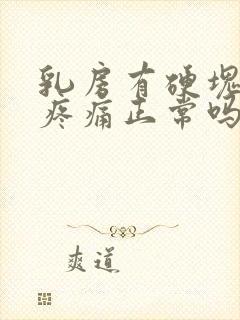 乳房有硬块
疼痛正常吗
爽道